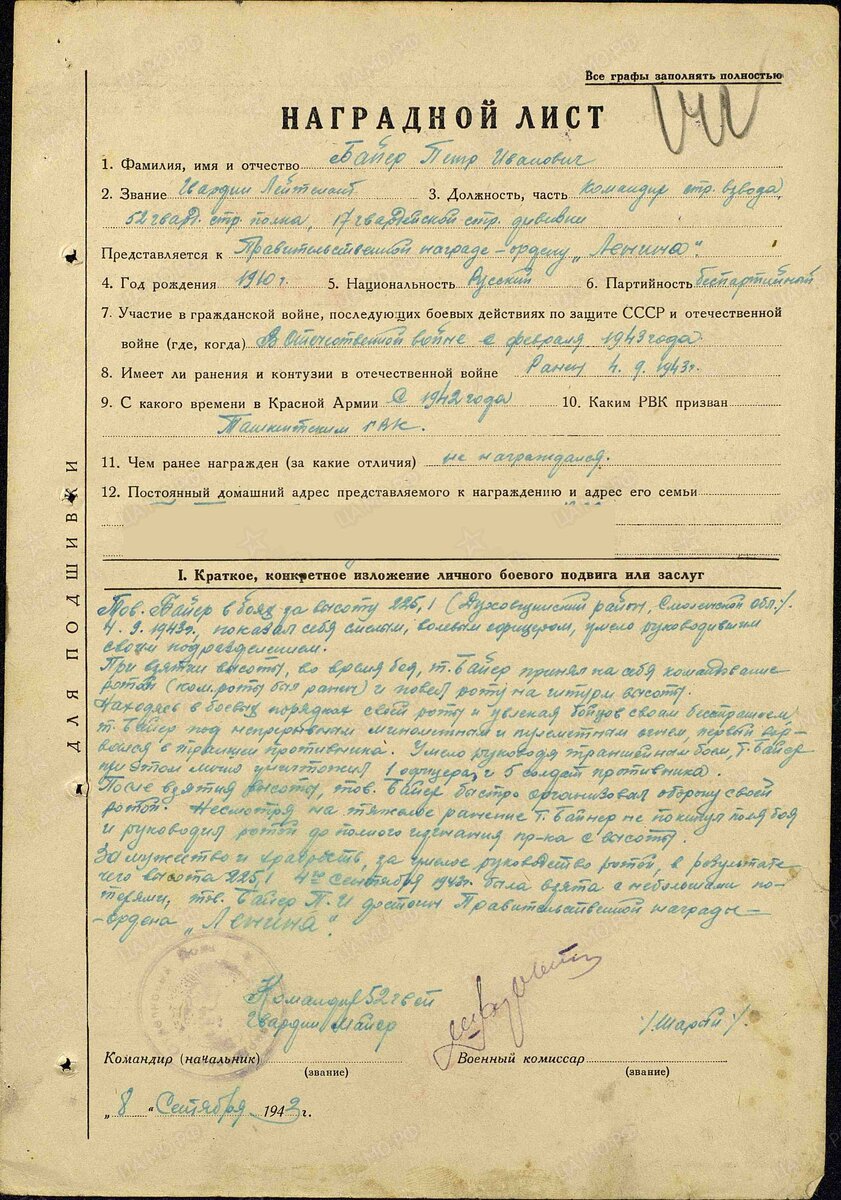 Все графы заполнять полностью
НАГРАДНОЙ ЛИСТ
1. Фамилия, имя и отчество Байер Петр Иванович
2. Звание Гвардии Лейтенант 3. Должность, часть Командир стр. взвода,
52 гвард. стр. полка, 17 гвардейской стр. дивизии
Представляется к Правительственной награде – ордену „Ленина".
4. Год рождения 1910 г. 5. Национальность Русский 6. Партийность беспартийный
7. Участие в гражданской войне, последующих боевых действиях по защите СССР и отечественной
войне (где, когда) В Отечественной войне с февраля 1943 года.
8. Имеет ли ранения и контузии в отечественной войне Ранен 4. 9. 1943г.
9. С какого времени в Красной Армии С 1942 года 10. Каким РВК призван
Ташкентским ГВК.
11. Чем ранее награжден (за какие отличия) не награждался.
12. Постоянный домашний адрес представляемого к награждению и адрес его семьи
I. Краткое, конкретное изложение личного боевого подвига или заслуг
Тов. Байер в боях за высоту 225,1 (Духовщинский район, Смоленской обл.).
4. 9. 1943г., показал себя смелым, волевым офицером, умело руководившим
своим подразделением.
При взятии высоты, во время боя, т. Байер принял на себя командование
ротой (ком. роты был ранен) и повел роту на штурм высоты.
Находясь в боевых порядках своей роты и увлекая бойцов своим бесстрашием,
т. Байер под непрерывным минометным и пулеметным огнем, первый вор-
вался в траншеи противника. Умело руководя траншейным боем, т. Байер
при этом лично уничтожил 1 офицера и 5 солдат противника.
После взятия высоты, тов. Байер быстро организовал оборону своей
ротой. Несмотря на тяжелое ранение т. Байер не покинул поля боя
и руководил ротой до полного изгнания пр-ка с высоты.
За мужество и храбрость, за умелое руководство ротой, в результате
чего высота 225,1 4го Сентября 1943г. была взята с небольшими по-
терями, тов. Байер П. И достоин Правительственной награды –
– ордена „Ленина".
Командир 52 гвсп
Гвардии Майор /Шарти/.
Командир (начальник) Военный комиссар
(звание) (звание)
„8" Сентября 1943 г.
ДЛЯ ПОДШИВКИ
ЦАМО.РФ